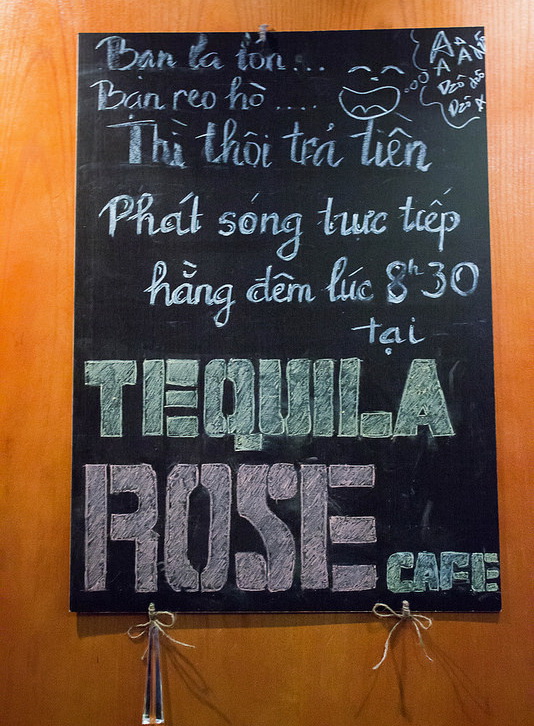 Bạn la lớn...
Bạn reo hò....
Thì thôi trả tiền
Phát sóng trực tiếp
hằng đêm lúc 8h30
tại
TEQUILA
ROSE
CAFE